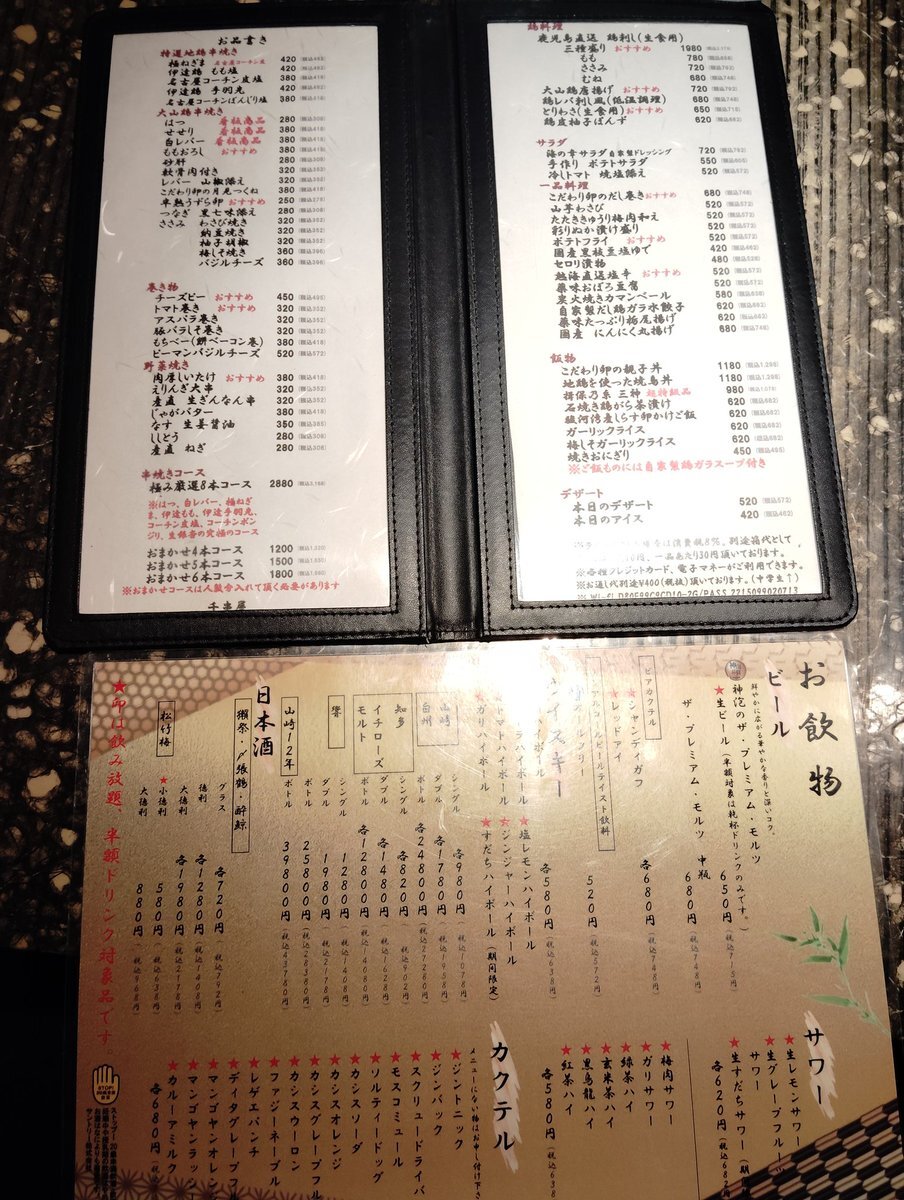 お品書き
特選地鶏串焼き
極ねぎま 名古屋コーチン皮 420 (税込462)
伊達鶏 もも塩 420 (税込462)
名古屋コーチン皮塩 380 (税込418)
伊達鶏 手羽先 420 (税込462)
名古屋コーチンぼんじり塩 380 (税込418)
大山鶏串焼き
はつ 看板商品 280 (税込308)
せせり 看板商品 380 (税込418)
白レバー 看板商品 380 (税込418)
ももおろし おすすめ 380 (税込418)
砂肝 280 (税込308)
軟骨肉付き 320 (税込352)
レバー 山椒添え 320 (税込352)
こだわり卵の月見つくね 380 (税込418)
半熟うずら卵 おすすめ 250 (税込275)
つなぎ 黒七味添え 280 (税込308)
ささみ わさび焼き 320 (税込352)
納豆焼き 320 (税込352)
柚子胡椒 320 (税込352)
梅しそ焼き 360 (税込396)
バジルチーズ 360 (税込396)
巻き物
チーズピー おすすめ 450 (税込495)
トマト巻き おすすめ 320 (税込352)
アスパラ巻き 320 (税込352)
豚バラしそ巻き 320 (税込352)
もちベー(餅ベーコン巻) 380 (税込418)
ピーマンバジルチーズ 520 (税込572)
野菜焼き
肉厚しいたけ おすすめ 380 (税込418)
えりんぎ大串 320 (税込352)
産直 生ぎんなん串 320 (税込352)
じゃがバター 380 (税込418)
なす 生姜醤油 350 (税込385)
ししとう 280 (税込308)
産直 ねぎ 280 (税込308)
串焼きコース
極み厳選8本コース 2880 (税込3,168)
※はつ、白レバー、極ねぎ
ま、伊達もも、伊達手羽先、
コーチン皮塩、コーチンボン
ジリ、生銀杏の究極のコース
おまかせ4本コース 1200 (税込1,320)
おまかせ5本コース 1500 (税込1,650)
おまかせ6本コース 1800 (税込1,980)
※おまかせコースは人数分入れて頂く必要があります
鶏料理
鹿児島直送 鶏刺し(生食用)
三種盛り おすすめ 1980
もも 780 (税込858)
ささみ 720 (税込792)
むね 680 (税込748)
大山鶏唐揚げ おすすめ 720 (税込792)
鶏レバ刺し風(低温調理) 680 (税込748)
とりわさ(生食用)おすすめ 650 (税込715)
鶏皮柚子ぽんず 620 (税込682)
サラダ
海の幸サラダ自家製ドレッシング 720 (税込792)
手作り ポテトサラダ 550 (税込605)
冷しトマト 焼塩添え 520 (税込572)
一品料理
こだわり卵のだし巻きおすすめ 680 (税込748)
山芋わさび 520 (税込572)
たたききゅうり梅肉和え 520 (税込572)
彩りぬか漬け盛り 520 (税込572)
ポテトフライ おすすめ 520 (税込572)
国産黒枝豆塩ゆで 420 (税込462)
セロリ漬物 480 (税込528)
熱海直送塩辛 おすすめ 520 (税込572)
薬味おぼろ豆腐 520 (税込572)
炭火焼きカマンベール 580 (税込638)
自家製だし鶏ガラ水餃子 620 (税込682)
薬味たっぷり栃尾揚げ 620 (税込682)
国産 にんにく丸揚げ 680 (税込748)
飯物
こだわり卵の親子丼 1180 (税込1,298)
地鶏を使った焼鳥丼 1180 (税込1,298)
揖保乃糸 三神 超特級品 980 (税込1,078)
石焼き鶏がら茶漬け 620 (税込682)
駿河湾産しらす卵かけご飯 620 (税込682)
ガーリックライス 620 (税込682)
梅しそガーリックライス 620 (税込682)
焼きおにぎり 450 (税込495)
※ご飯ものには自家製鶏ガラスープ付き
デザート
本日のデザート 520 (税込572)
本日のアイス 420 (税込462)
は消費税8%、別途箱代として
一品あたり30円頂いております。
※各種クレジットカード、電子マネーがご利用できます。
※お通し代別途¥400(税抜)頂いております。(中学生↑)
お飲物
ビール
鮮やかに広がる華やかな香りと深いコク。
神泡のザ・プレミアム・モルツ
★生ビール(半額対象は乾杯ドリンクのみです。) 650円 (税込715円)
ザ・プレミアム・モルツ 中瓶 680円 (税込748円)
ビアカクテル 各680円 (税込748円)
★シャンディガフ
★レッドアイ
ノンアルコールビールテイスト飲料 520円 (税込572円)
ウイスキー
各580円 (税込638円)
★塩レモンハイボール
★トマトハイボール ★ジンジャーハイボール
★ガリハイボール ★すだちハイボール(期間限定)
山崎
白州
シングル 各980円 (税込1078円)
ダブル 各1780円 (税込1958円)
ボトル 各24800円 (税込27280円)
知多
イチローズモルト
シングル 各820円 (税込902円)
ダブル 各1480円 (税込1628円)
ボトル 各12800円 (税込14080円)
響
シングル 1280円 (税込1408円)
ダブル 1980円 (税込2178円)
ボトル 25800円 (税込28380円)
山崎12年
ボトル 39800円 (税込43780円)
日本酒
獺祭・〆張鶴・酔鯨
グラス 各720円 (税込792円)
徳利 各1280円 (税込1408円)
大徳利 各1980円 (税込2178円)
松竹梅
★小徳利 580円 (税込638円)
大徳利 880円 (税込968円)
★印は飲み放題、半額ドリンク対象品です。
サワー
★生レモンサワー
★生グレープフルーツサワー
★生すだちサワー
各620円 (税込682円)
★梅肉サワー
★ガリサワー
★緑茶ハイ
★玄米茶ハイ
★黒烏龍ハイ
★紅茶ハイ
各580円 (税込638
カクテル
メニューにない物はお申し付け下さ
★ジントニック
★ジンバック
★スクリュードライバ
★モスコミュール
★ソルティードッグ
★カシスソーダ
★カシスオレンジ
★カシスグレープフル
★カシスウーロン
★ファジーネーブル
★レゲエパンチ
★ディタグレープフル
★マンゴオレンジ
★マンゴヤンラッシ
★カルーアミルク
各680円 (税込
STOP!
ストップ!20歳未満飲酒
サントリー株式会社